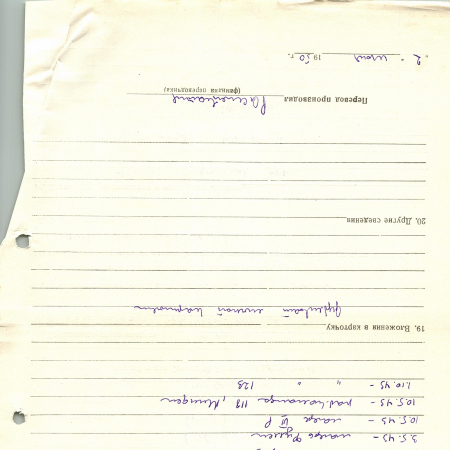 3.5.45 – лагерь Фуллен
10.5.45 – лагерь VI F
10.5.45 – раб/команда 118,
1.10.45 – " " 128
19. Вложения в карточку
личной карточки
20. Другие сведения
Перевод производил
(фамилия переводчика)
"2" июня 1950 г.